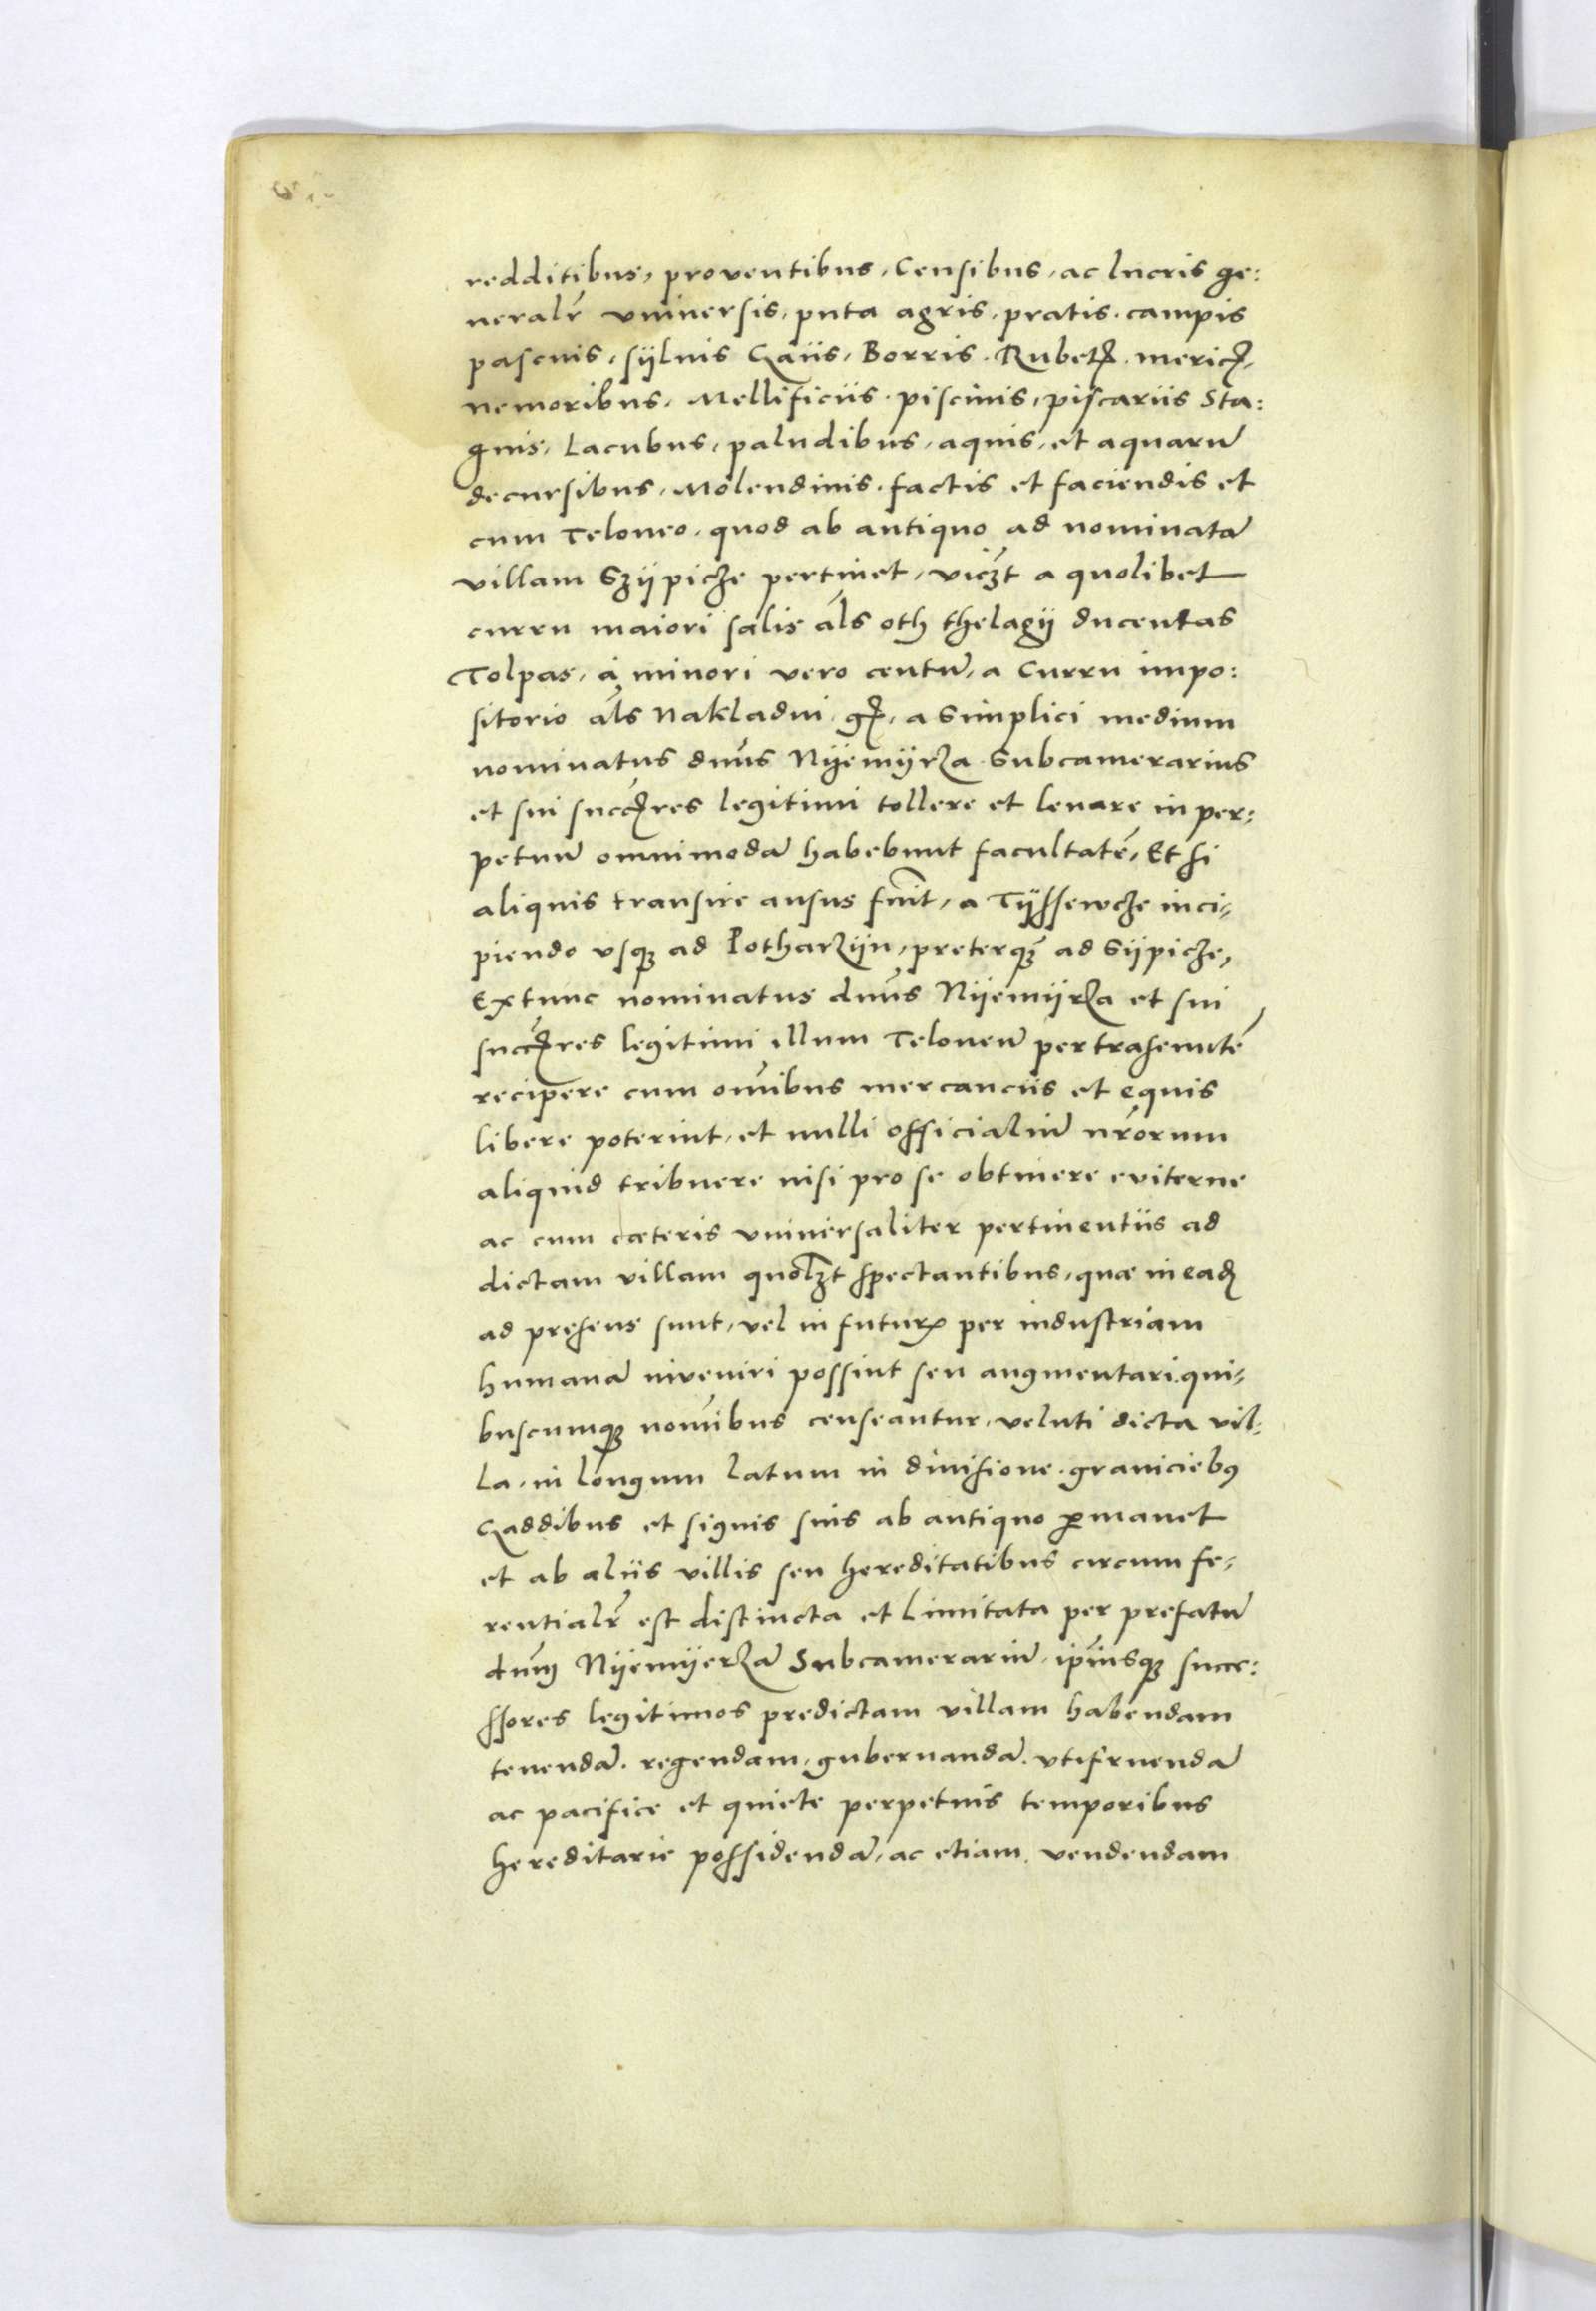 redditibus, proventibus, Censibus, ac lucris ge:
neralr̃ vniuersis, puta agris, pratis, campis
pascuis, sÿluis Gaiis, Borris, Rubetꝭ, mericꝭ,
nemoribus, Mellificiis, piscinis, piscariis Sta:
gnis, Lacubus, paludibus, aquis, et aquarũ
decursibus, Molendinis, factis et faciendis et
cum Teloneo, quod ab antiquo ad nominatã
villam Szÿpicze pertinet, vicꝫt a quolibet
curru maiori salis als̃ oth thelagÿ ducentas
Tolpas, a minori vero centũ, a Curru impo:
sitorio als̃ Nakladni, gꝭ, a Simplici medium
nominatus dñus Nÿemÿrza Subcamerarius
et sui succꝭres legitimi tollere et leuare in per-
petuũ omnimodã habebunt facultatẽ, Et si
aliquis transire ausus fuĩt, a Tÿssewcze inci-
piendo vsqꝫ ad Potharzÿn, preterqꝫ̃ ad Sÿpicze,
Extunc nominatus dñus Nÿemÿrza et sui
succꝭres legitimi illum Teloneũ pertraseuntẽ
recipere cum oм̃ibus mercanciis et equis
libere poterint, et nulli officialiũ nr̃orum
aliquid tribuere nisi pro se obtinere eviterne
ac cum cæteris vniuersaliter pertinentiis ad
dictam villam quolꝫt spectantibus, quæ in eadꝫ
ad presens sunt, vel in futurꝝ per industriam
humanã inveniri possint seu augmentari qui-
buscumqꝫ nom̃ibus censeantur, veluti dicta vil-
la, in longum latum in diuisione, graniciebꝯ
Gaddibus et signis suis ab antiquo ꝑmanet
et ab aliis villis seu hereditatibus circumfe-
rentialr̃ est distincta et limitata per prefatũ
dñuꝫ Nÿemÿerzã Subcamerariũ, ip̃iusqꝫ succe:
ssores legitimos predictam villam habendam
tenendã, regendam, gubernandã, vtifruendã
ac pacifice et quiete perpetuis temporibus
hereditarie possidendã, ac etiam vendendam